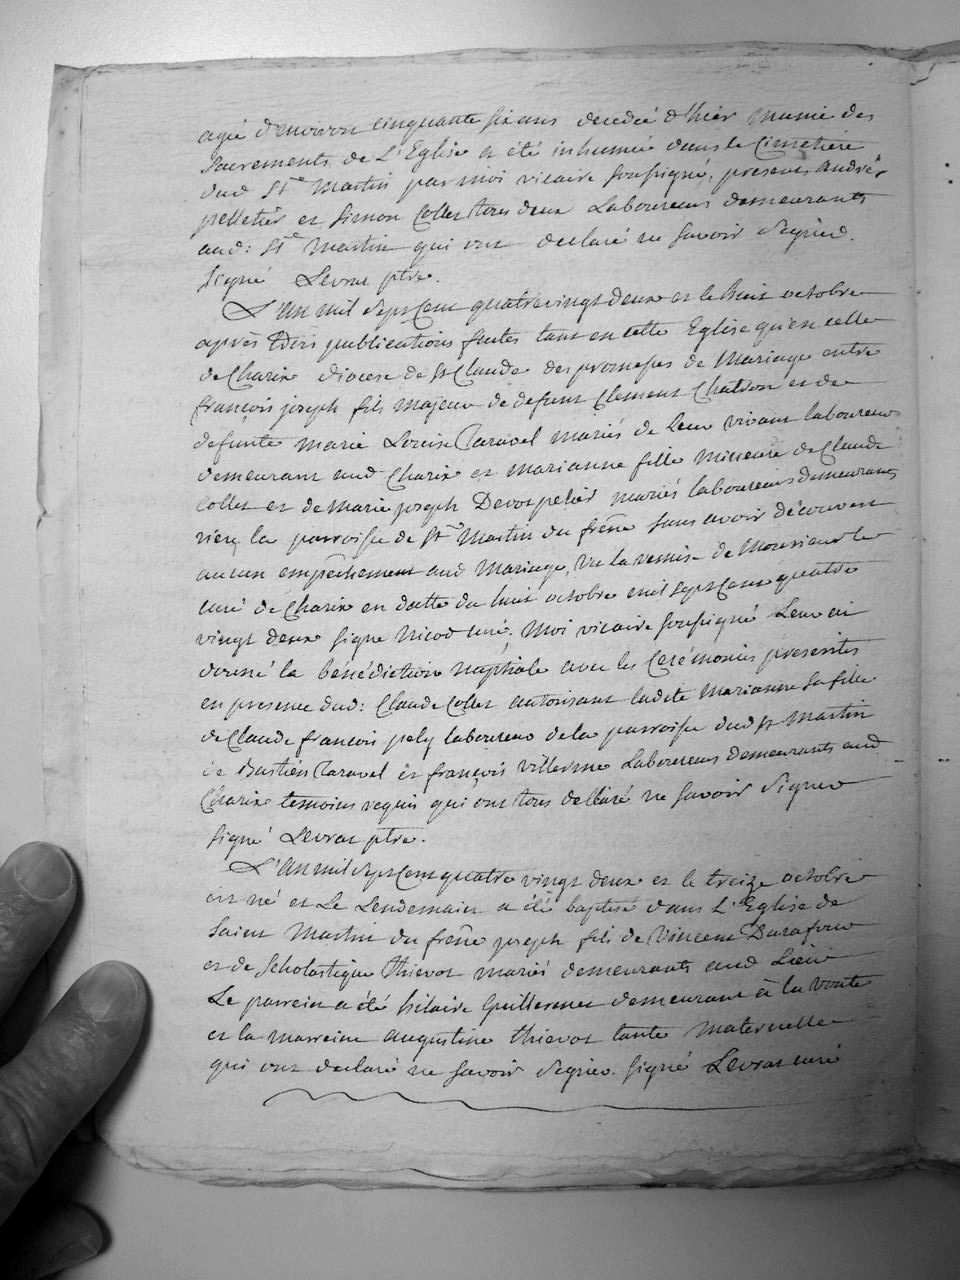 agée d'environ cinquante six ans decedée d'hier munie des
Sacrements de L'Eglise a été inhumée dans le Cimetière
dud St Martin par moi vicaire soussigné, presens André
pelletier et Simon Collet tous deux Laboureurs demeurants
aud: St Martin qui ont declaré ne savoir Signer.
Signé Levrat ptre.
L'An mil Sept Cent quatre vingt deux et le huit octobre
après trois publications faites tant en cette Eglise qu'en celle
de Charix diocese de St Claude des promesses de Mariage entre
françois joseph fils Majeur de defunt Clement Chatson et de
defunte Marie Louise Caravel mariés de Leur vivant laboureurs
demeurant aud Charix et Marianne fille Mineure de Claude
Collet et de Marie joseph Devorpelier mariés laboureurs demeurants
riere la parroisse de St Martin du frêne sans avoir découvert
aucun empêchement aud Mariage, Vu la remise de Monsieur le
curé de Charix en datte du huit octobre mil Sept Cent quatre
vingt deux signé Nicod curé. Moi vicaire soussigné Leur ai
donné la bénédiction Nuptiale avec les Cérémonies prescrites
en presence dud: Claude Collet autorisant ladite Marianne Sa fille
de Claude françois pely laboureur de la parroisse dud St Martin
de Bastien Caravel et françois Villerme Laboureurs demeurants aud
Charix temoins requis qui ont tous déclaré ne Savoir Signer
signé Levrat ptre.
L'An mil Sept Cent quatre vingt deux et le treize octobre
est né et Le Lendemain a été baptisé dans L'Eglise de
Saint Martin du frêne joseph fils de Vincent Durafour
et de Scholastique Thievot mariés demeurants aud Lieu
Le parrein a été hilaire Guillermet demeurant à la Voute
et la marreine augustine thievot tante Maternelle
qui ont declaré ne savoir Signer. signé Levrat curé